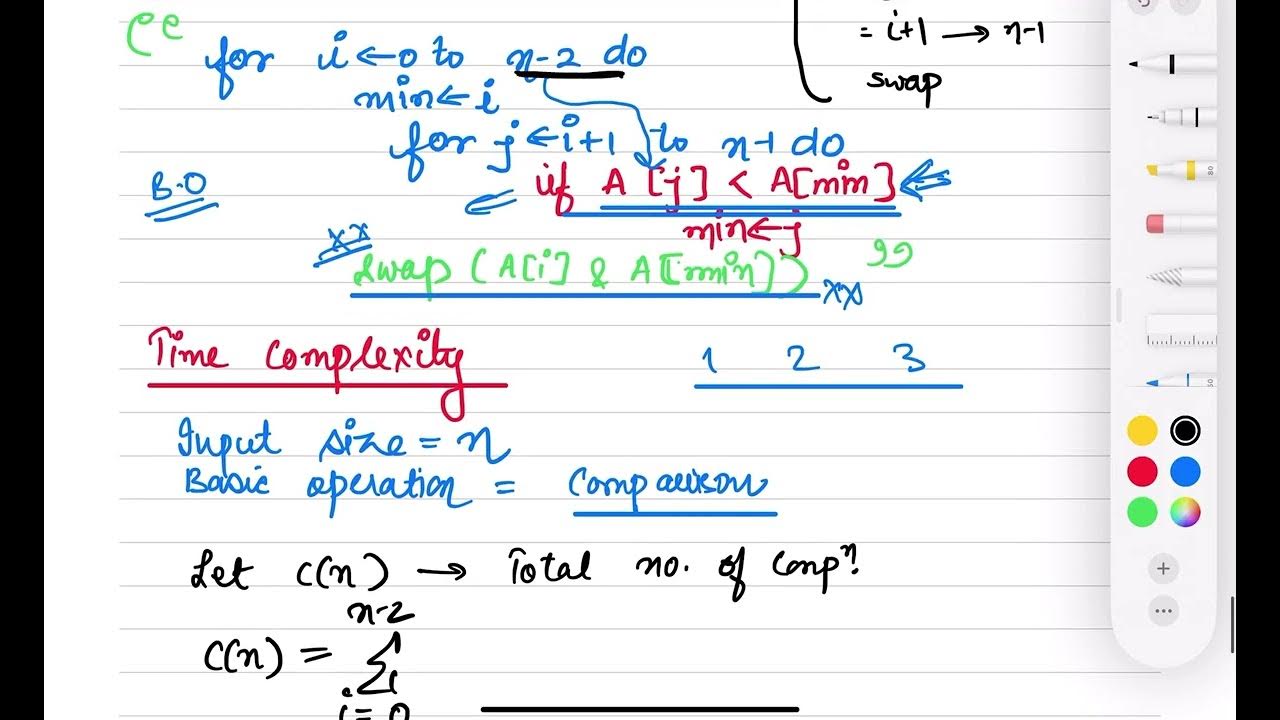 = i+1 → n-1
swap
for i ← 0 to n-2 do
min ← i
for j ← i+1 to n-1 do
B.O
if A[j] < A[min]
min ← j
xx
swap (A[i] & A[min])
xx
Time complexity
1 2 3
Input size = n
Basic operation = Comparison
Let C(n) → Total no. of compⁿ.
n-2
C(n) = Σ
i = 0